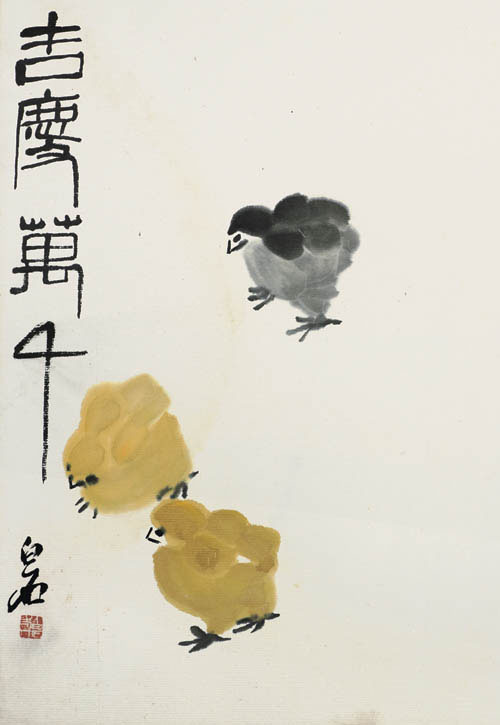 吉慶萬千
白石